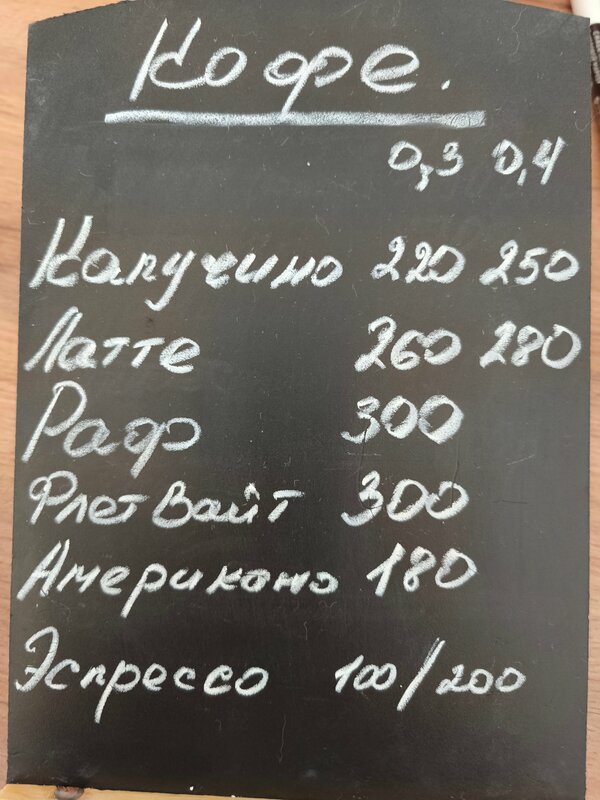 Кофе.
0,3 0,4
Капучино 220 250
Латте 260 280
Раф 300
Флет Вайт 300
Американо 180
Эспрессо 100/200